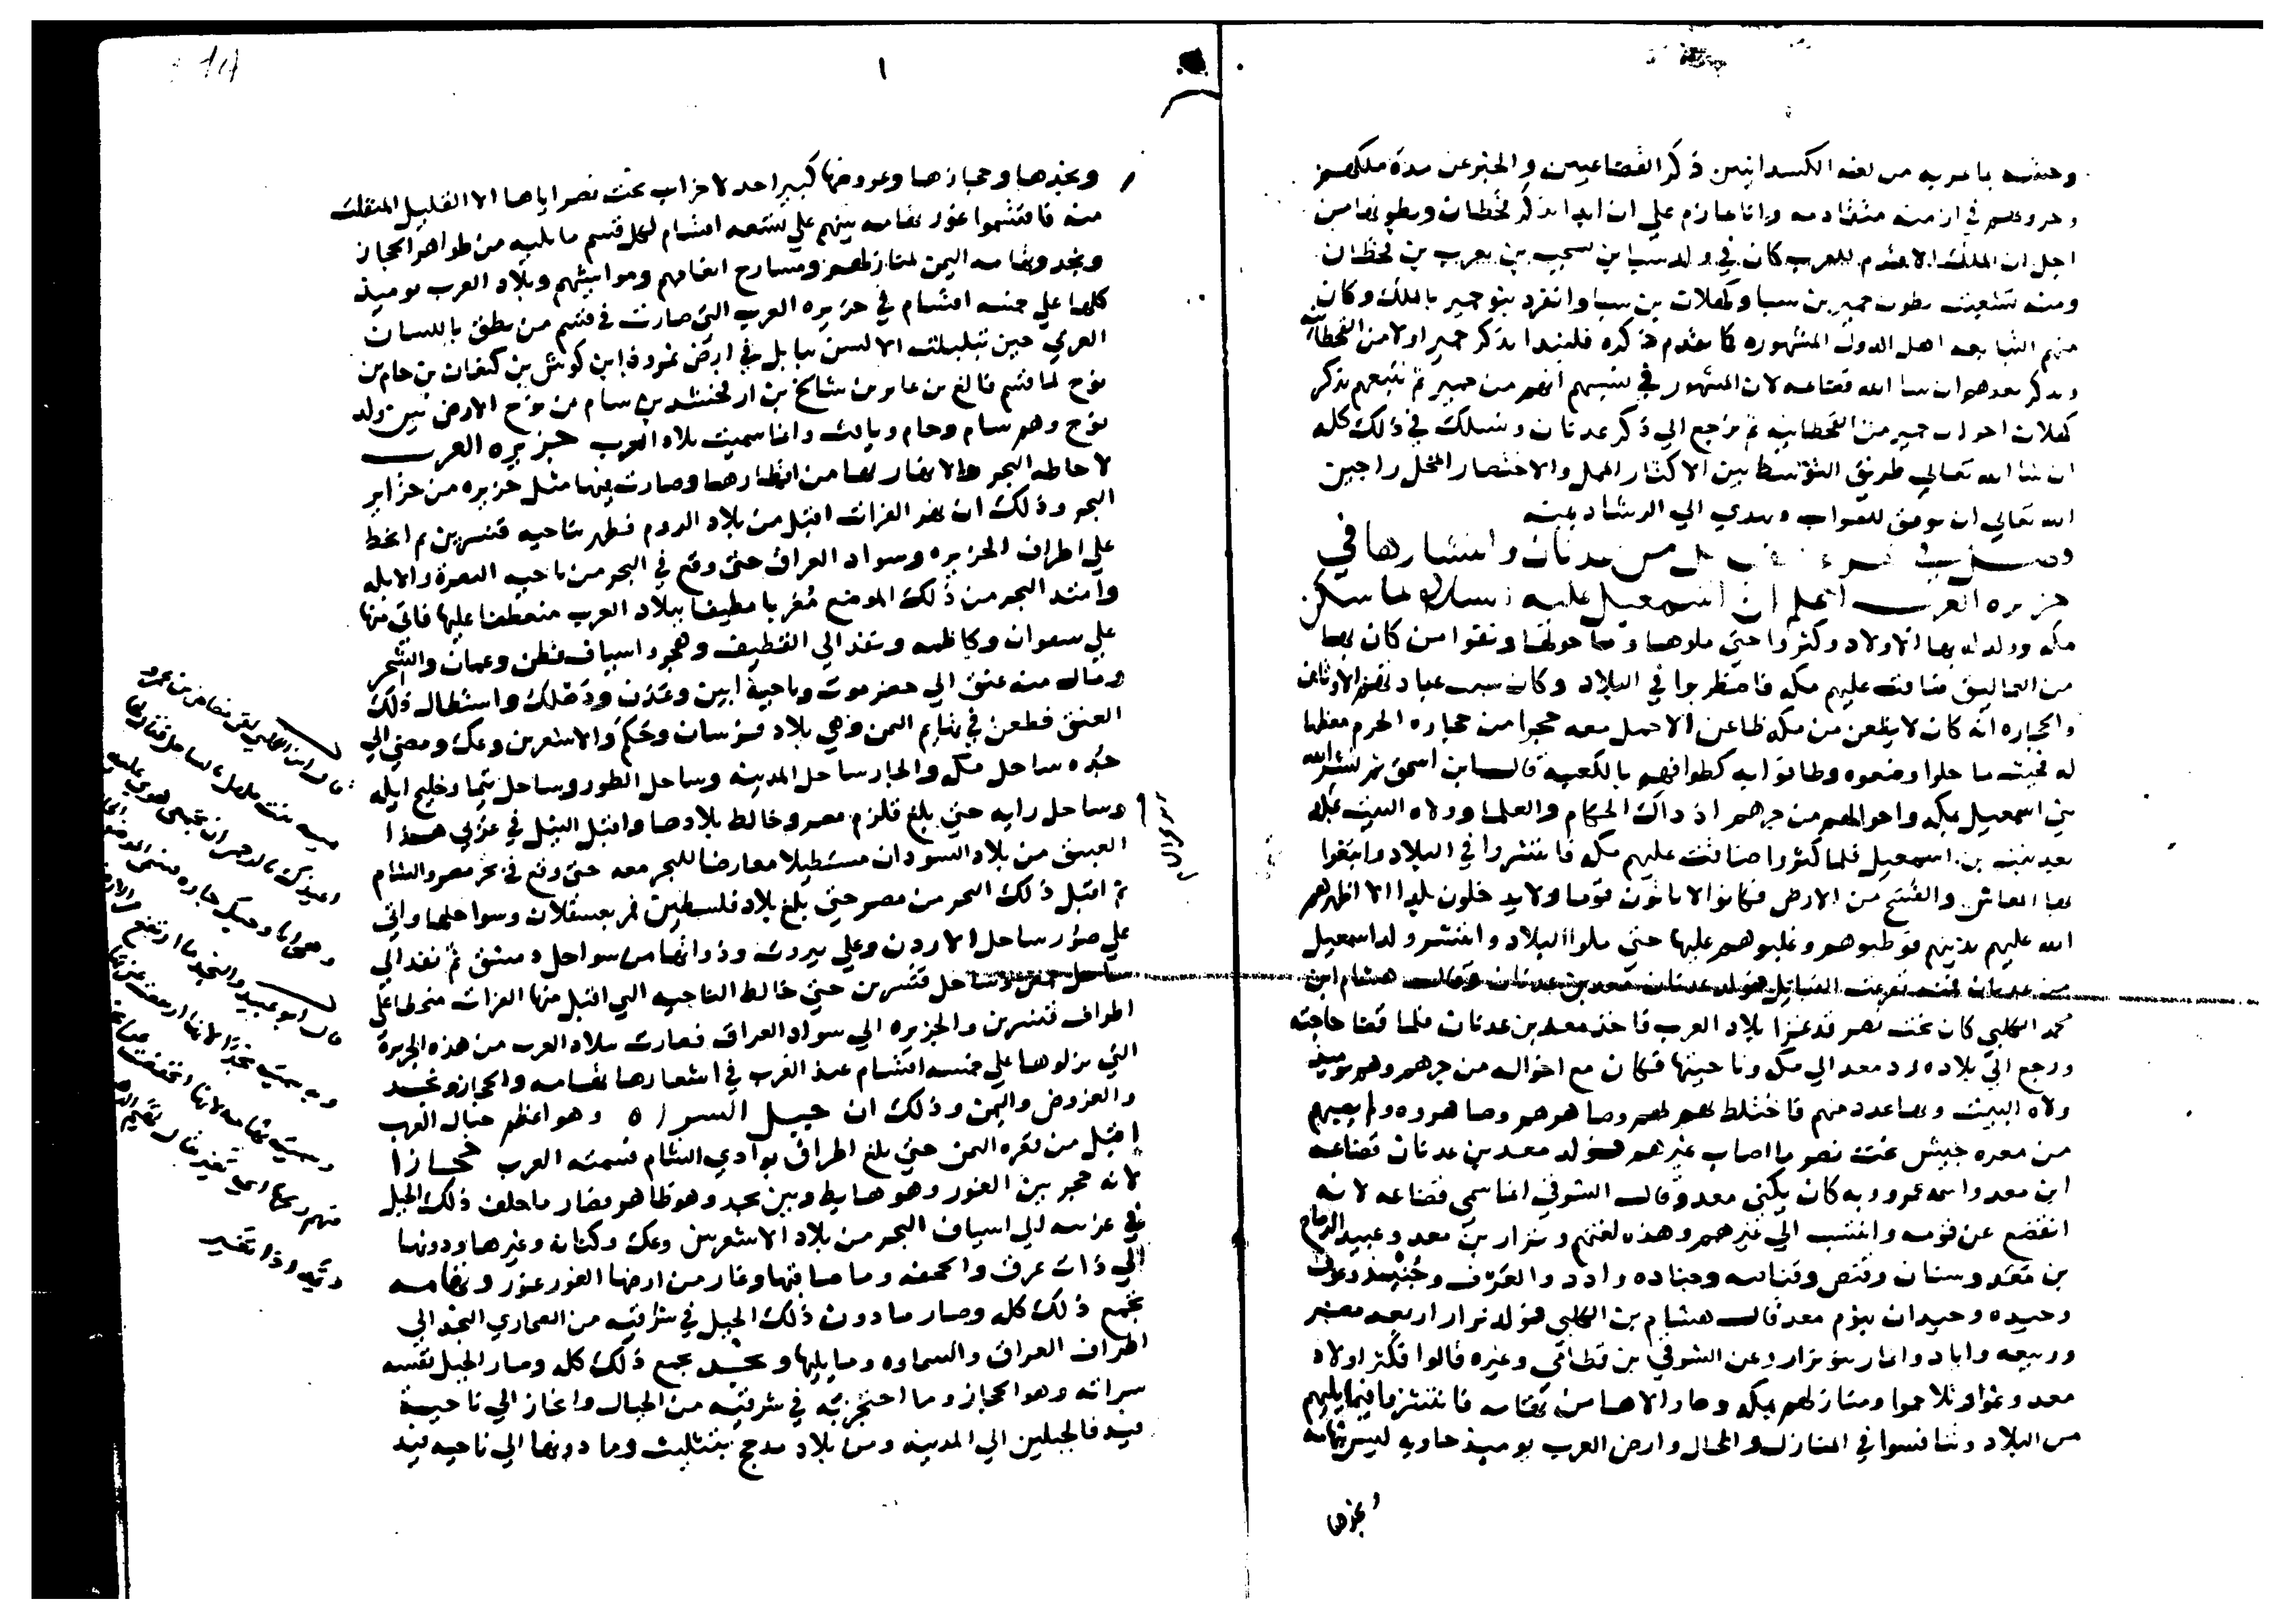 وحسه ما عربه من لغه الكسدانيين ذكر القضاعيين والخبر عن مدة ملكهم
وحروبهم في ازمنه متقادمه وانا عازم علي ان ابدا بذكر قحطان وبطونها من
اجل ان الملك الاقدم للعرب كان في ولد سبا بن يشجب بن يعرب بن قحطان
ومنه تشعبت بطون حمير بن سبا وكهلان بن سبا وانفرد بنو حمير بالملك وكان
منهم التبابعه اهل الدول المشهوره كما تقدم ذكره فلنبدا بذكر حمير اولا من القحطانيه
ونذكر بعدهم ان شا الله قضاعه لان المشهور في نسبهم انهم من حمير ثم نتبعهم بذكر
كهلان اخوان حمير من القحطانيه ثم نرجع الي ذكر عدنان ونسلك في ذلك كله
ان شا الله تعالي طريق التوسط بين الاكثار الممل والاختصار المخل راجين
الله تعالي ان يوفق للصواب ويهدي الي الرشاد بمنه
من عدنان وانتشارها في
جزيره العرب اعلم ان اسمعيل عليه السلام لما سكن
مكه وولد له بها الاولاد وكثروا حتي ملوها وما حولها ونفوا من كان بها
من العماليق ضاقت عليهم مكه فاضطربوا في البلاد وكان سبب عبادتهم الاوثان
والحجاره انه كان لا يظعن من مكه ظاعن الا حمل معه حجرا من حجاره الحرم معظما
له فحيث ما حلوا وضعوه وطافوا به كطوافهم بالكعبه قال ابن اسحق ثم نشر الله
بني اسمعيل بمكه واخوالهم من جرهم اذ ذاك الحكام والعلما وولاه البيت بمكه
بعد نبت بن اسمعيل فلما كثروا ضاقت عليهم مكه فانتشروا في البلاد وابتغوا
بها المعاش والفسح من الارض فكانوا لا ياتون قوما ولا يدخلون بلدا الا اظهرهم
الله عليهم بدينهم فوطيوهم وغلبوهم عليها حتي ملوا البلاد وانتشر ولد اسمعيل
من عدنان فمنه تفرعت القبايل فولد عدنان معد بن عدنان وقال هشام ابن
محمد الكلبي كان بخت نصر قد غزا بلاد العرب فاخذ معد بن عدنان فلما قضا حاجته
ورجع الي بلاده رد معد الي مكه وناحيتها فكان مع اخواله من جرهم وهم يوميذ
ولاه البيت وبها عدد منهم فاختلط بهم وصاهرهم وصاهروه ولم يصبهم
من معره جيش بخت نصر ما اصاب غيرهم فولد معد بن عدنان قضاعه
ابن معد واسمه عمرو وبه كان يكني معد وقال الشرقي انما سمي قضاعه لانه
انقضع عن قومه وانتسب الي غيرهم وهذه لغتهم ونزار بن معد وعبيد الرماح
بن معد وسنان وقنص وقناصه وجناده واود والعرف وجنيد وعوف
وحيده وحيدان بنو معد قال هشام بن الكلبي فولد نزار اربعه مضر
وربيعه واياد وانمار بنو نزار وعن الشرقي بن قطامي وغيره قالوا فكثر اولاد
معد ونموا وتلاحموا ومنازلهم بمكه وما والاها من تهامه فانتشروا فيما يليهم
من البلاد وتنافسوا في المنازل والمحال وارض العرب يوميذ خاويه ليس بتهامه
ونجدها
١
ونجدها وحجازها وعروضها كبير احد لاخراب بخت نصر اياها الا القليل المنفلت
منه فاقتسموا غور تهامه بينهم علي تسعه اقسام لكل قسم ما يليه من ظواهر الحجاز
ونجد وتهامه اليمن لمنازلهم ومسارح انعامهم ومواشيهم وبلاد العرب يوميذ
كلها علي خمسه اقسام في جزيره العرب التي صارت في قسم من نطق باللسان
العربي حين تبلبلت الالسن ببابل في ارض نمروذ ابن كوش بن كنعان بن حام بن
نوح لما قسم فالغ بن عابر بن شالخ بن ارفخشد بن سام بن نوح الارض بين ولد
نوح وهم سام وحام ويافث وانما سميت بلاد العرب جزيره العرب
لاحاطه البحر والانهار بها من اقطارها وصارت منها مثل جزيره من جزاير
البحر وذلك ان نهر الفرات اقبل من بلاد الروم فظهر بناحيه قنسرين ثم انحط
علي اطراف الجزيره وسواد العراق حتي وقع في البحر من ناحيه البصرة والابله
وامتد البحر من ذلك الموضع مغربا مطيفا ببلاد العرب منعطفا عليها فاتي منها
علي سفوان وكاظمه ونفذ الي القطيف وهجر واسياف قطن وعمان والشحر
ومال منه عنق الي حضرموت وناحية ابين وعدن ودهلك واستطال ذلك
العنق فطعن في تهايم اليمن وهي بلاد فرسان وحكم والاشعرين وعك ومضي الي
جده ساحل مكه والجار ساحل المدينه وساحل الطور وساحل تيما وخليج ايله
وساحل رايه حتي بلغ قلزم مصر وخالط بلادها واقبل النيل في غربي هذا
العنق من بلاد السودان مستطيلا معارضا للبحر معه حتي وقع في بحر مصر والشام
ثم اقبل ذلك البحر من مصر حتي بلغ بلاد فلسطين فمر بعسقلان وسواحلها واتي
علي صور ساحل الاردن وعلي بيروت وذواتها من سواحل دمشق ثم نفذ الي
ساحل حمص وساحل قنسرين حتي خالط الناحيه التي اقبل منها الفرات منحطا علي
اطراف قنسرين والجزيره الي سواد العراق فصارت بلاد العرب من هذه الجزيرة
التي نزلوها علي خمسه اقسام عند العرب في اشعارها تهامه والحجاز ونجد
والعروض واليمن وذلك ان جبل السراه وهو اعظم جبال العرب
اقبل من قعره اليمن حتي بلغ اطراف بوادي الشام فسمته العرب حجازا
لانه حجز بين الغور وهو هابط وبين نجد وهو ظاهر فصار ما خلف ذلك الجبل
في غربيه الي اسياف البحر من بلاد الاشعرين وعك وكنانه وغيرها ودونها
الي ذات عرق والجحفه وما صاقبها وغار من ارضها الغور غور وتهامه
تجمع ذلك كله وصار ما دون ذلك الجبل في شرقيه من الصحاري النجد الي
اطراف العراق والسماوه وما يليها ونجد تجمع ذلك كله وصار الجبل نفسه
سراته وهو الحجاز وما احتجز به في شرقيه من الجبال وانحاز الي ناحية
فيد فالجبلين الي المدينه ومن بلاد مذحج بتثليث وما دونها الي ناحيه فيد